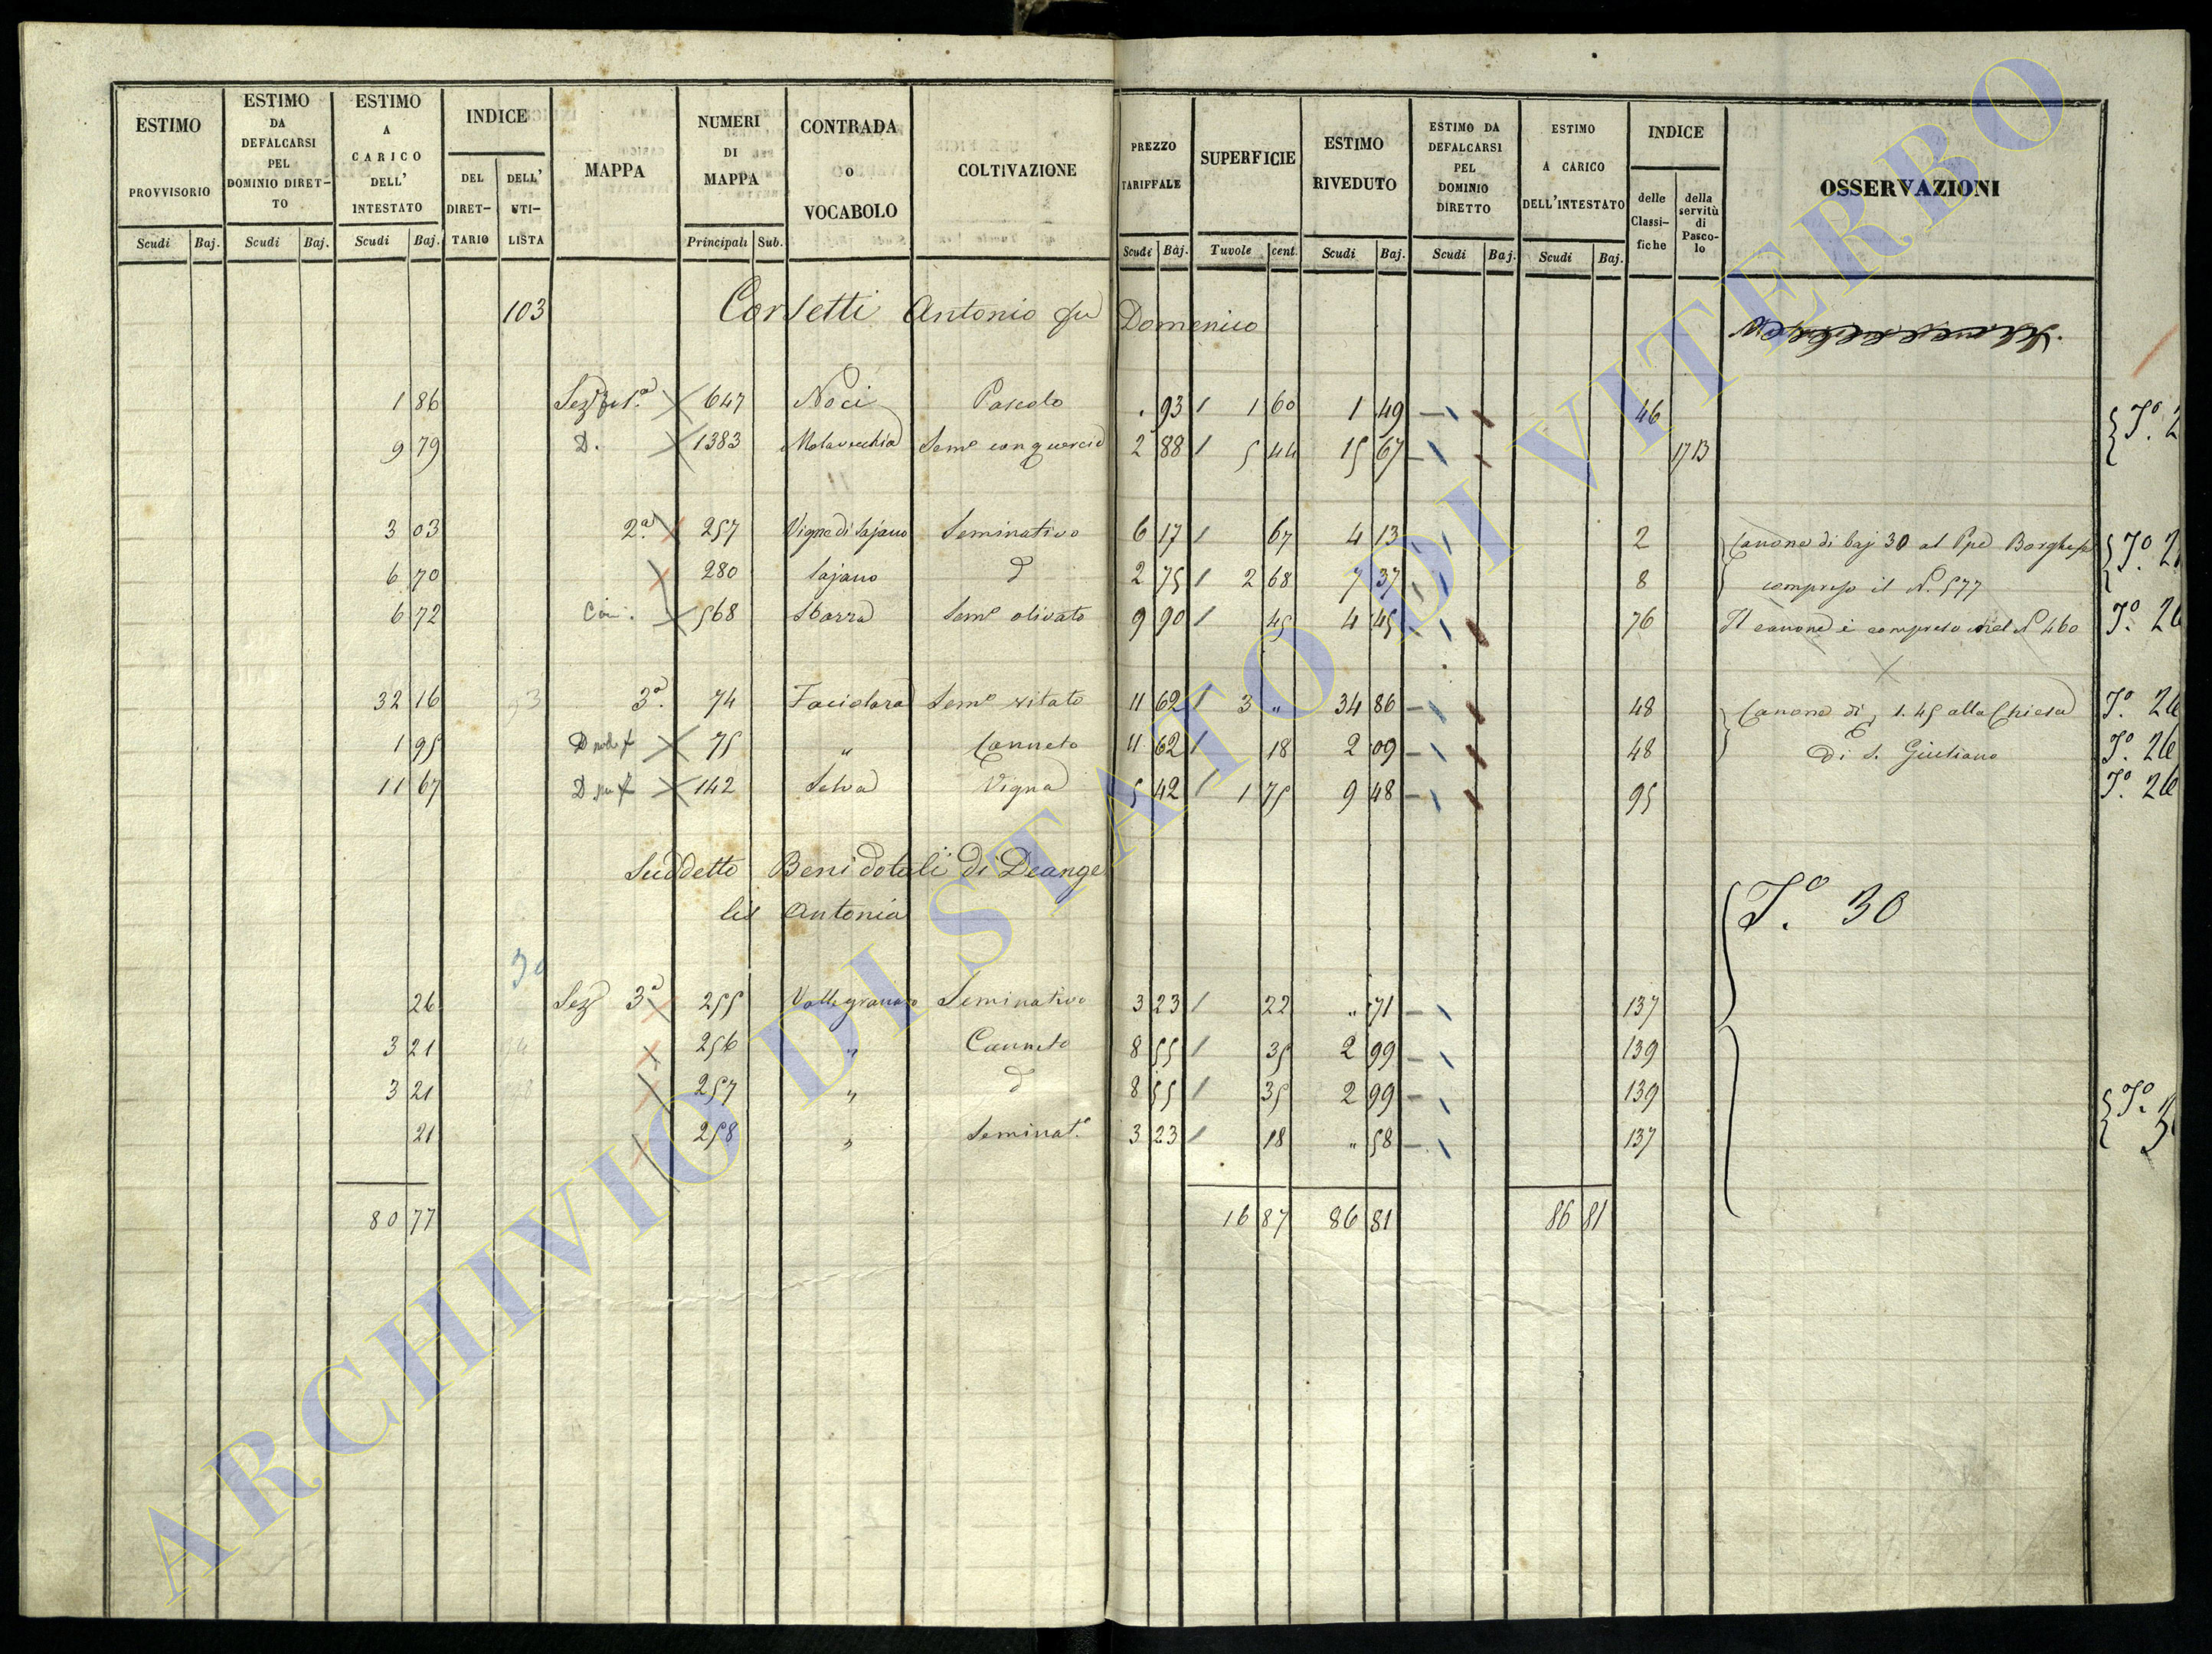 ESTIMO PROVVISORIO Scudi Baj.
ESTIMO DA DEFALCARSI PEL DOMINIO DIRET-TO Scudi Baj.
ESTIMO A CARICO DELL' INTESTATO Scudi Baj.
INDICE DEL DIRET-TARIO DELL' UTI-LISTA
MAPPA
NUMERI DI MAPPA Principali Sub.
CONTRADA O VOCABOLO
COLTIVAZIONE
PREZZO TARIFFALE Scudi Baj.
SUPERFICIE Tavole cent.
ESTIMO RIVEDUTO Scudi Baj.
ESTIMO DA DEFALCARSI PEL DOMINIO DIRETTO Scudi Baj.
ESTIMO A CARICO DELL'INTESTATO Scudi Baj.
INDICE delle Classi-fiche della servitù di Pasco-lo
OSSERVAZIONI
103 Corsetti Antonio fu Domenico
1 86 1ª 647 Noci Pascolo . 93 1 60 1 49 46
9 79 D. 1383 Molavecchia Semo con quercie 2 88 5 44 15 67 17 13
3 03 2ª 257 Vigne di Sajano Seminativo 6 17 67 4 13 2 Canone di baj 30 al Ppe Borghese
6 70 280 Sajano d 2 75 2 68 7 37 8 compreso il N. 577
6 72 568 Sbarra Semo olivato 9 90 45 4 45 76 Il canone è compreso nel N 460
32 16 3ª 74 Semo vitato 11 62 3 " 34 86 48 Canone di 1.45 alla Chiesa
1 95 75 " Canneto 11 62 18 2 09 48 Di S. Giuliano
11 67 142 Selva Vigna 5 42 1 75 9 48 95
Suddetto Beni dotali di Deange
lis Antonia
Tº. 30
30
26 Sez 3ª 255 Seminativo 3 23 22 " 71 137
3 21 256 " Canneto 8 55 35 2 99 139
3 21 257 " d 8 55 35 2 99 139
21 258 " Seminat.o 3 23 18 " 58 137
80 77 16 87 86 81 86 81
ARCHIVIO DI STATO DI VITERBO